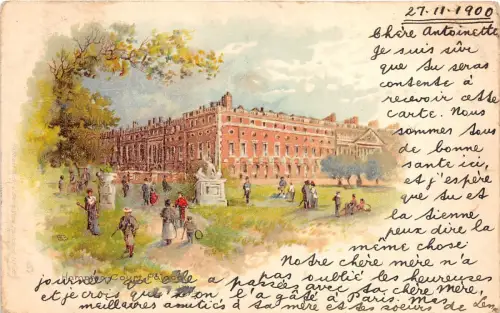 27-11-1900
Chère Antoinette
Je suis sûr
que tu seras
contente à
recevoir cette
carte. Nous
sommes tous
de bonne
santé ici,
et j'espère
que tu et
la tienne
peux dire la
même chose
Notre chère mère n'a
pas oublié les heureuses
journées qu'elle a passées avec sa chère mère,
et je crois que l'on l'a gâté à Paris. Mes
meilleures amitiés à ta mère et tes soeurs de
Hampton Court Palace